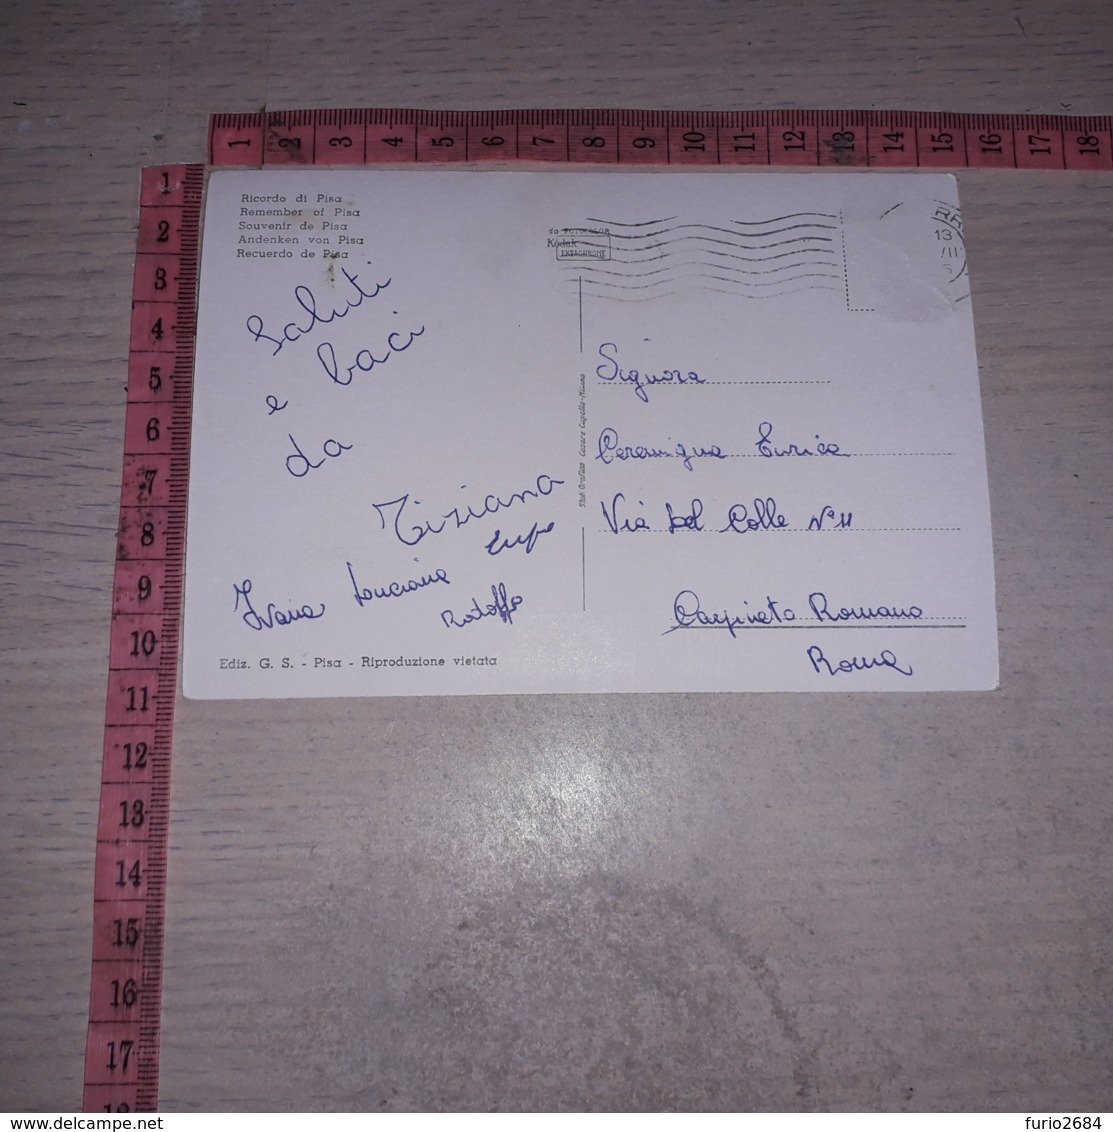 1 2 3 4 5 6 7 8 9 10 11 12 13 14 15 16 17 18
1
2
3
4
5
6
7
8
9
10
11
12
13
14
15
16
17
18
Ricordo di Pisa
Remember of Pisa
Souvenir de Pisa
Andenken von Pisa
Recuerdo de Pisa
da FOTOCOLOR
Kodak
EKTACHROME
13
VII
Saluti
e baci
da
Tiziana
Ivana Luciana
Rodolfo
Ediz. G. S. - Pisa - Riproduzione vietata
Stab. Grafico Cesare Capello - Milano
Signora
Ceramigna Eurica
Via del Colle N° 11
Carpineto Romano
Roma
delcampe.net
furio2684